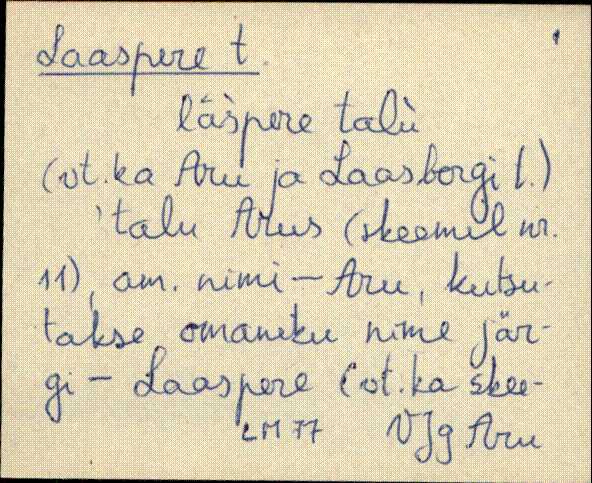 Laaspere t.
lä̀spere talù
(vt. ka Aru ja Laasborgi t.)
'talu Arus (skeemil nr.
11), am. nimi – Aru, kutsu-
takse omaniku nime jär-
gi – Laaspere (vt. ka skee-
LM 77 VJg Aru